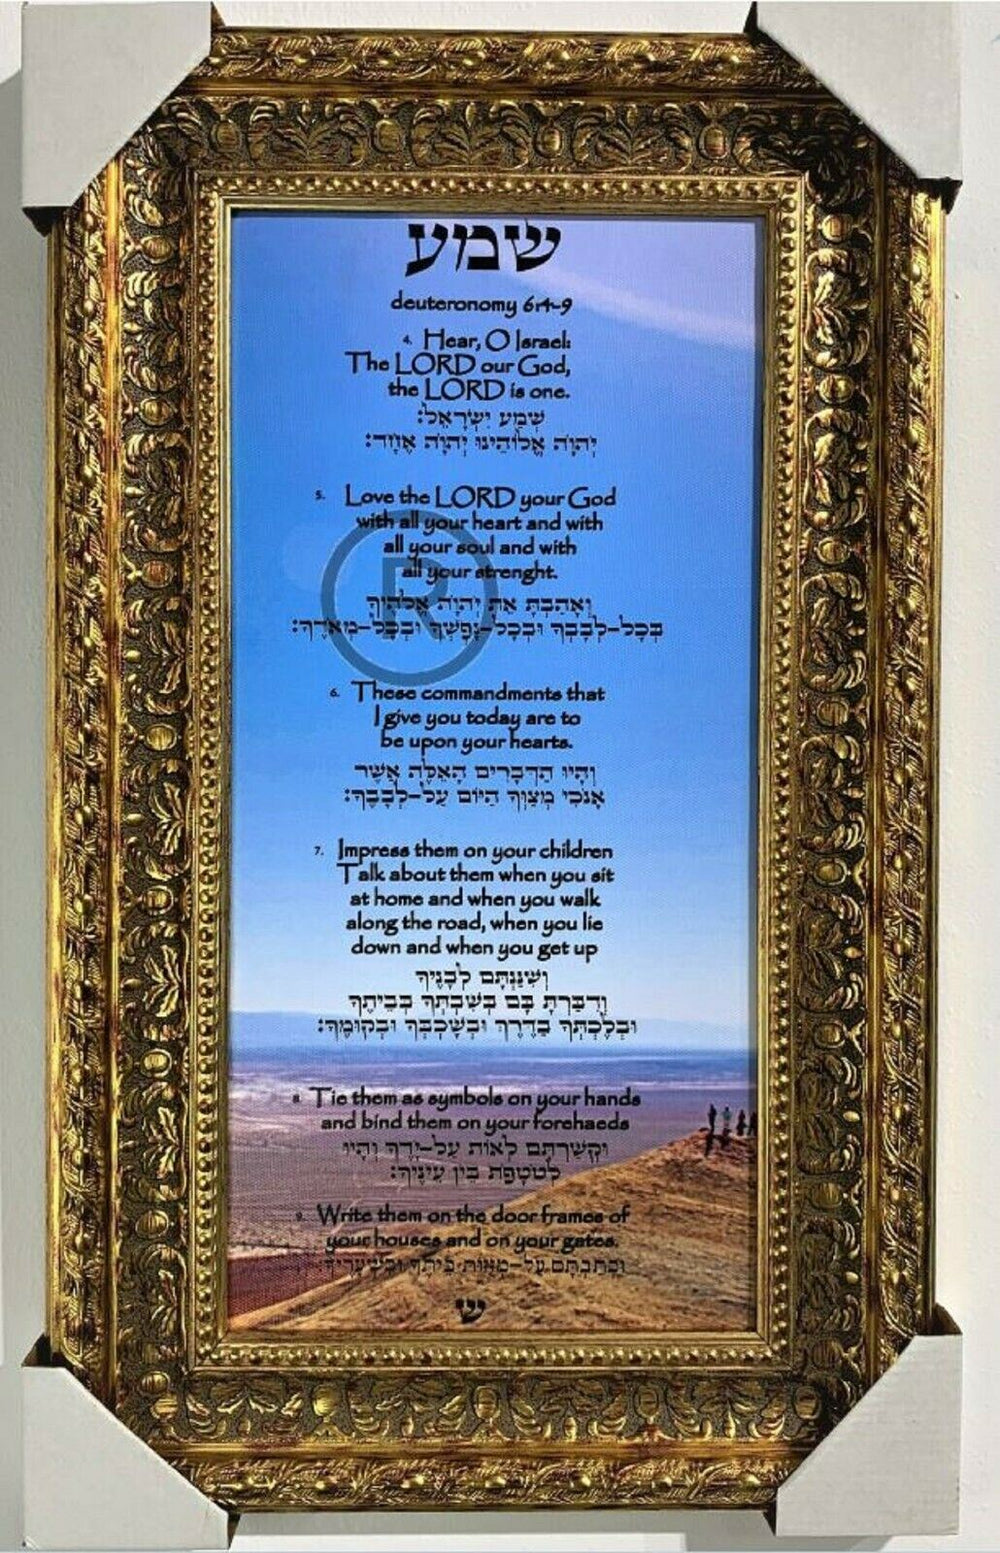 שמע
deuteronomy 6:4-9
4. Hear, O Israel:
The LORD our God,
the LORD is one.
שְׁמַע יִשְׂרָאֵל:
יְהוָֹה אֱלוֹהֵינוּ יְהוָֹה אֶחָד:
5. Love the LORD your God
with all your heart and with
all your soul and with
all your strenght.
וְאָהַבְתָּ אֵת יְהוָֹה אֱלֹהֶיךָ
בְּכָל-לְבָבְךָ וּבְכָל-נַפְשְׁךָ וּבְכָל-מְאֹדֶךָ:
6. These commandments that
I give you today are to
be upon your hearts.
וְהָיוּ הַדְּבָרִים הָאֵלֶּה אֲשֶׁר
אָנֹכִי מְצַוְּךָ הַיּוֹם עַל-לְבָבֶךָ:
7. Impress them on your children
Talk about them when you sit
at home and when you walk
along the road, when you lie
down and when you get up
וְשִׁנַּנְתָּם לְבָנֶיךָ
וְדִבַּרְתָּ בָּם בְּשִׁבְתְּךָ בְּבֵיתֶךָ
וּבְלֶכְתְּךָ בַדֶּרֶךְ וּבְשָׁכְבְּךָ וּבְקוּמֶךָ:
8. Tie them as symbols on your hands
and bind them on your forehaeds
וּקְשַׁרְתָּם לְאוֹת עַל-יָדֶךָ וְהָיוּ
לְטֹטָפֹת בֵּין עֵינֶיךָ:
9. Write them on the door frames of
your houses and on your gates.
וּכְתַבְתָּם עַל-מְזֻזוֹת בֵּיתֶךָ וּבִשְׁעָרֶיךָ:
ש
R